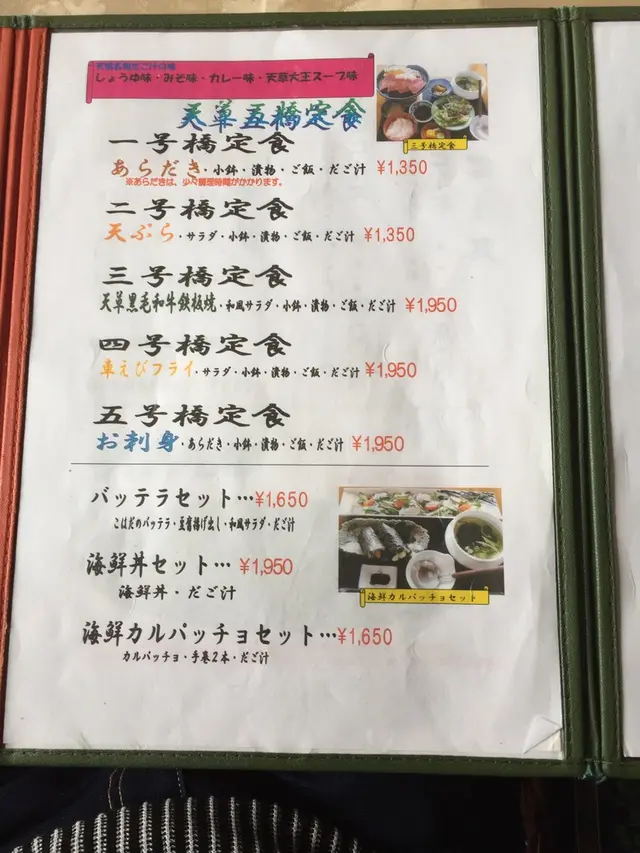 天草名物だご汁の味
しょうゆ味・みそ味・カレー味・天草大王スープ味
天草五橋定食
三号橋定食
一号橋定食
あらだき・小鉢・漬物・ご飯・だご汁 ¥1,350
※あらだきは、少々調理時間がかかります。
二号橋定食
天ぷら・サラダ・小鉢・漬物・ご飯・だご汁 ¥1,350
三号橋定食
天草黒毛和牛鉄板焼・和風サラダ・小鉢・漬物・ご飯・だご汁 ¥1,950
四号橋定食
車えびフライ・サラダ・小鉢・漬物・ご飯・だご汁 ¥1,950
五号橋定食
お刺身・あらだき・小鉢・漬物・ご飯・だご汁 ¥1,950
バッテラセット…¥1,650
こはだのバッテラ・豆腐揚げ出し・和風サラダ・だご汁
海鮮丼セット… ¥1,950
海鮮丼・だご汁
海鮮カルパッチョセット
海鮮カルパッチョセット…¥1,650
カルパッチョ・手巻2本・だご汁